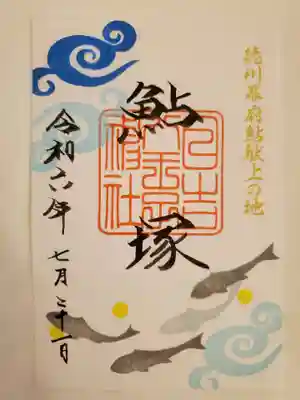 徳川幕府鮎献上の地
鮎塚
日吉
八王子
神社
令和六年 七月二十一日